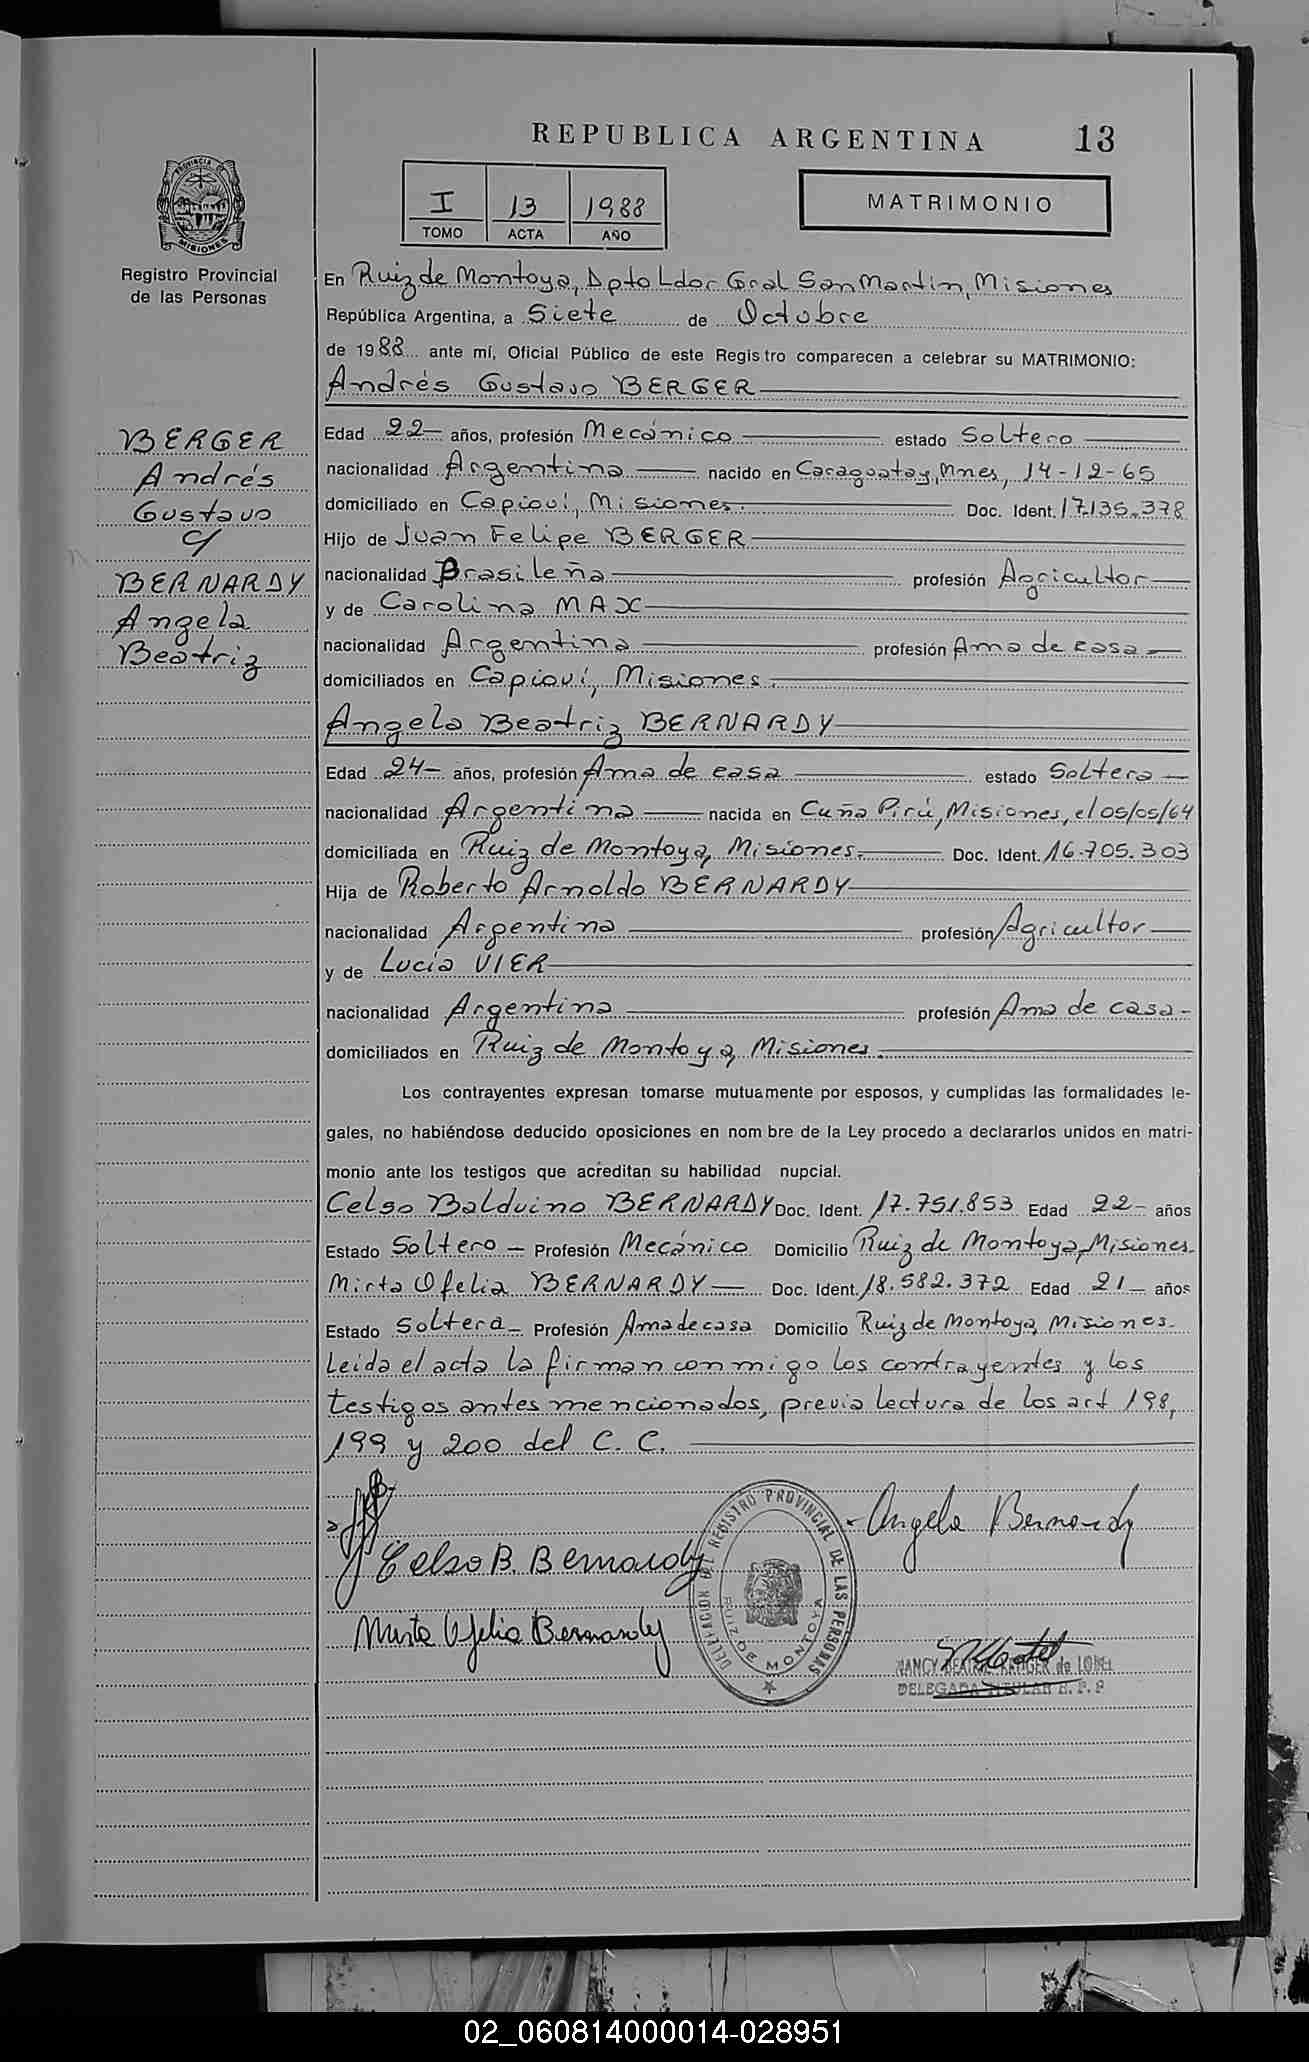 REPUBLICA ARGENTINA 13
PROVINCIA DE MISIONES
Registro Provincial
de las Personas
I 13 1988
TOMO ACTA AÑO
MATRIMONIO
BERGER
Andrés
Gustavo
c/
BERNARDY
Angela
Beatriz
En Ruiz de Montoya, Dpto Ldor Gral San Martin, Misiones
República Argentina, a Siete de Octubre
de 1988 ante mí, Oficial Público de este Registro comparecen a celebrar su MATRIMONIO:
Andrés Gustavo BERGER
Edad 22 años, profesión Mecánico estado Soltero
nacionalidad Argentina nacido en Caraguatay, Mnes, 14-12-65
domiciliado en Capioví, Misiones. Doc. Ident. 17.135.378
Hijo de Juan Felipe BERGER
nacionalidad Brasileña profesión Agricultor
y de Carolina MAX
nacionalidad Argentina profesión Ama de casa
domiciliados en Capioví, Misiones.
Angela Beatriz BERNARDY
Edad 24 años, profesión Ama de casa estado Soltera
nacionalidad Argentina nacida en Cuña Pirú, Misiones, el 05/05/64
domiciliada en Ruiz de Montoya, Misiones. Doc. Ident. 16.705.303
Hija de Roberto Arnoldo BERNARDY
nacionalidad Argentina profesión Agricultor
y de Lucía VIER
nacionalidad Argentina profesión Ama de casa
domiciliados en Ruiz de Montoya, Misiones.
Los contrayentes expresan tomarse mutuamente por esposos, y cumplidas las formalidades le-
gales, no habiéndose deducido oposiciones en nombre de la Ley procedo a declararlos unidos en matri-
monio ante los testigos que acreditan su habilidad nupcial.
Celso Balduino BERNARDY Doc. Ident. 17.751.853 Edad 22 años
Estado Soltero Profesión Mecánico Domicilio Ruiz de Montoya, Misiones.
Mirta Ofelia BERNARDY Doc. Ident. 18.582.372 Edad 21 años
Estado Soltera Profesión Ama de casa Domicilio Ruiz de Montoya, Misiones.
Leída el acta la firman conmigo los contrayentes y los
testigos antes mencionados, previa lectura de los art 198,
199 y 200 del C. C.
Angela Bernardy
Celso B. Bernardy
Mirta Ofelia Bernardy
DELEGACION DEL REGISTRO PROVINCIAL DE LAS PERSONAS
RUIZ DE MONTOYA
NANCY BEATRIZ KRUGER de LOBEL
DELEGADA TITULAR R. P. P
02_060814000014-028951